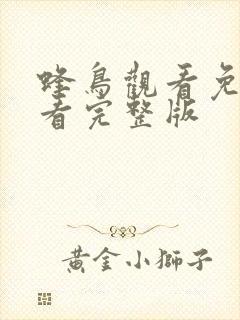 蜂鳥觀看免
看完整版
黃金小獅子